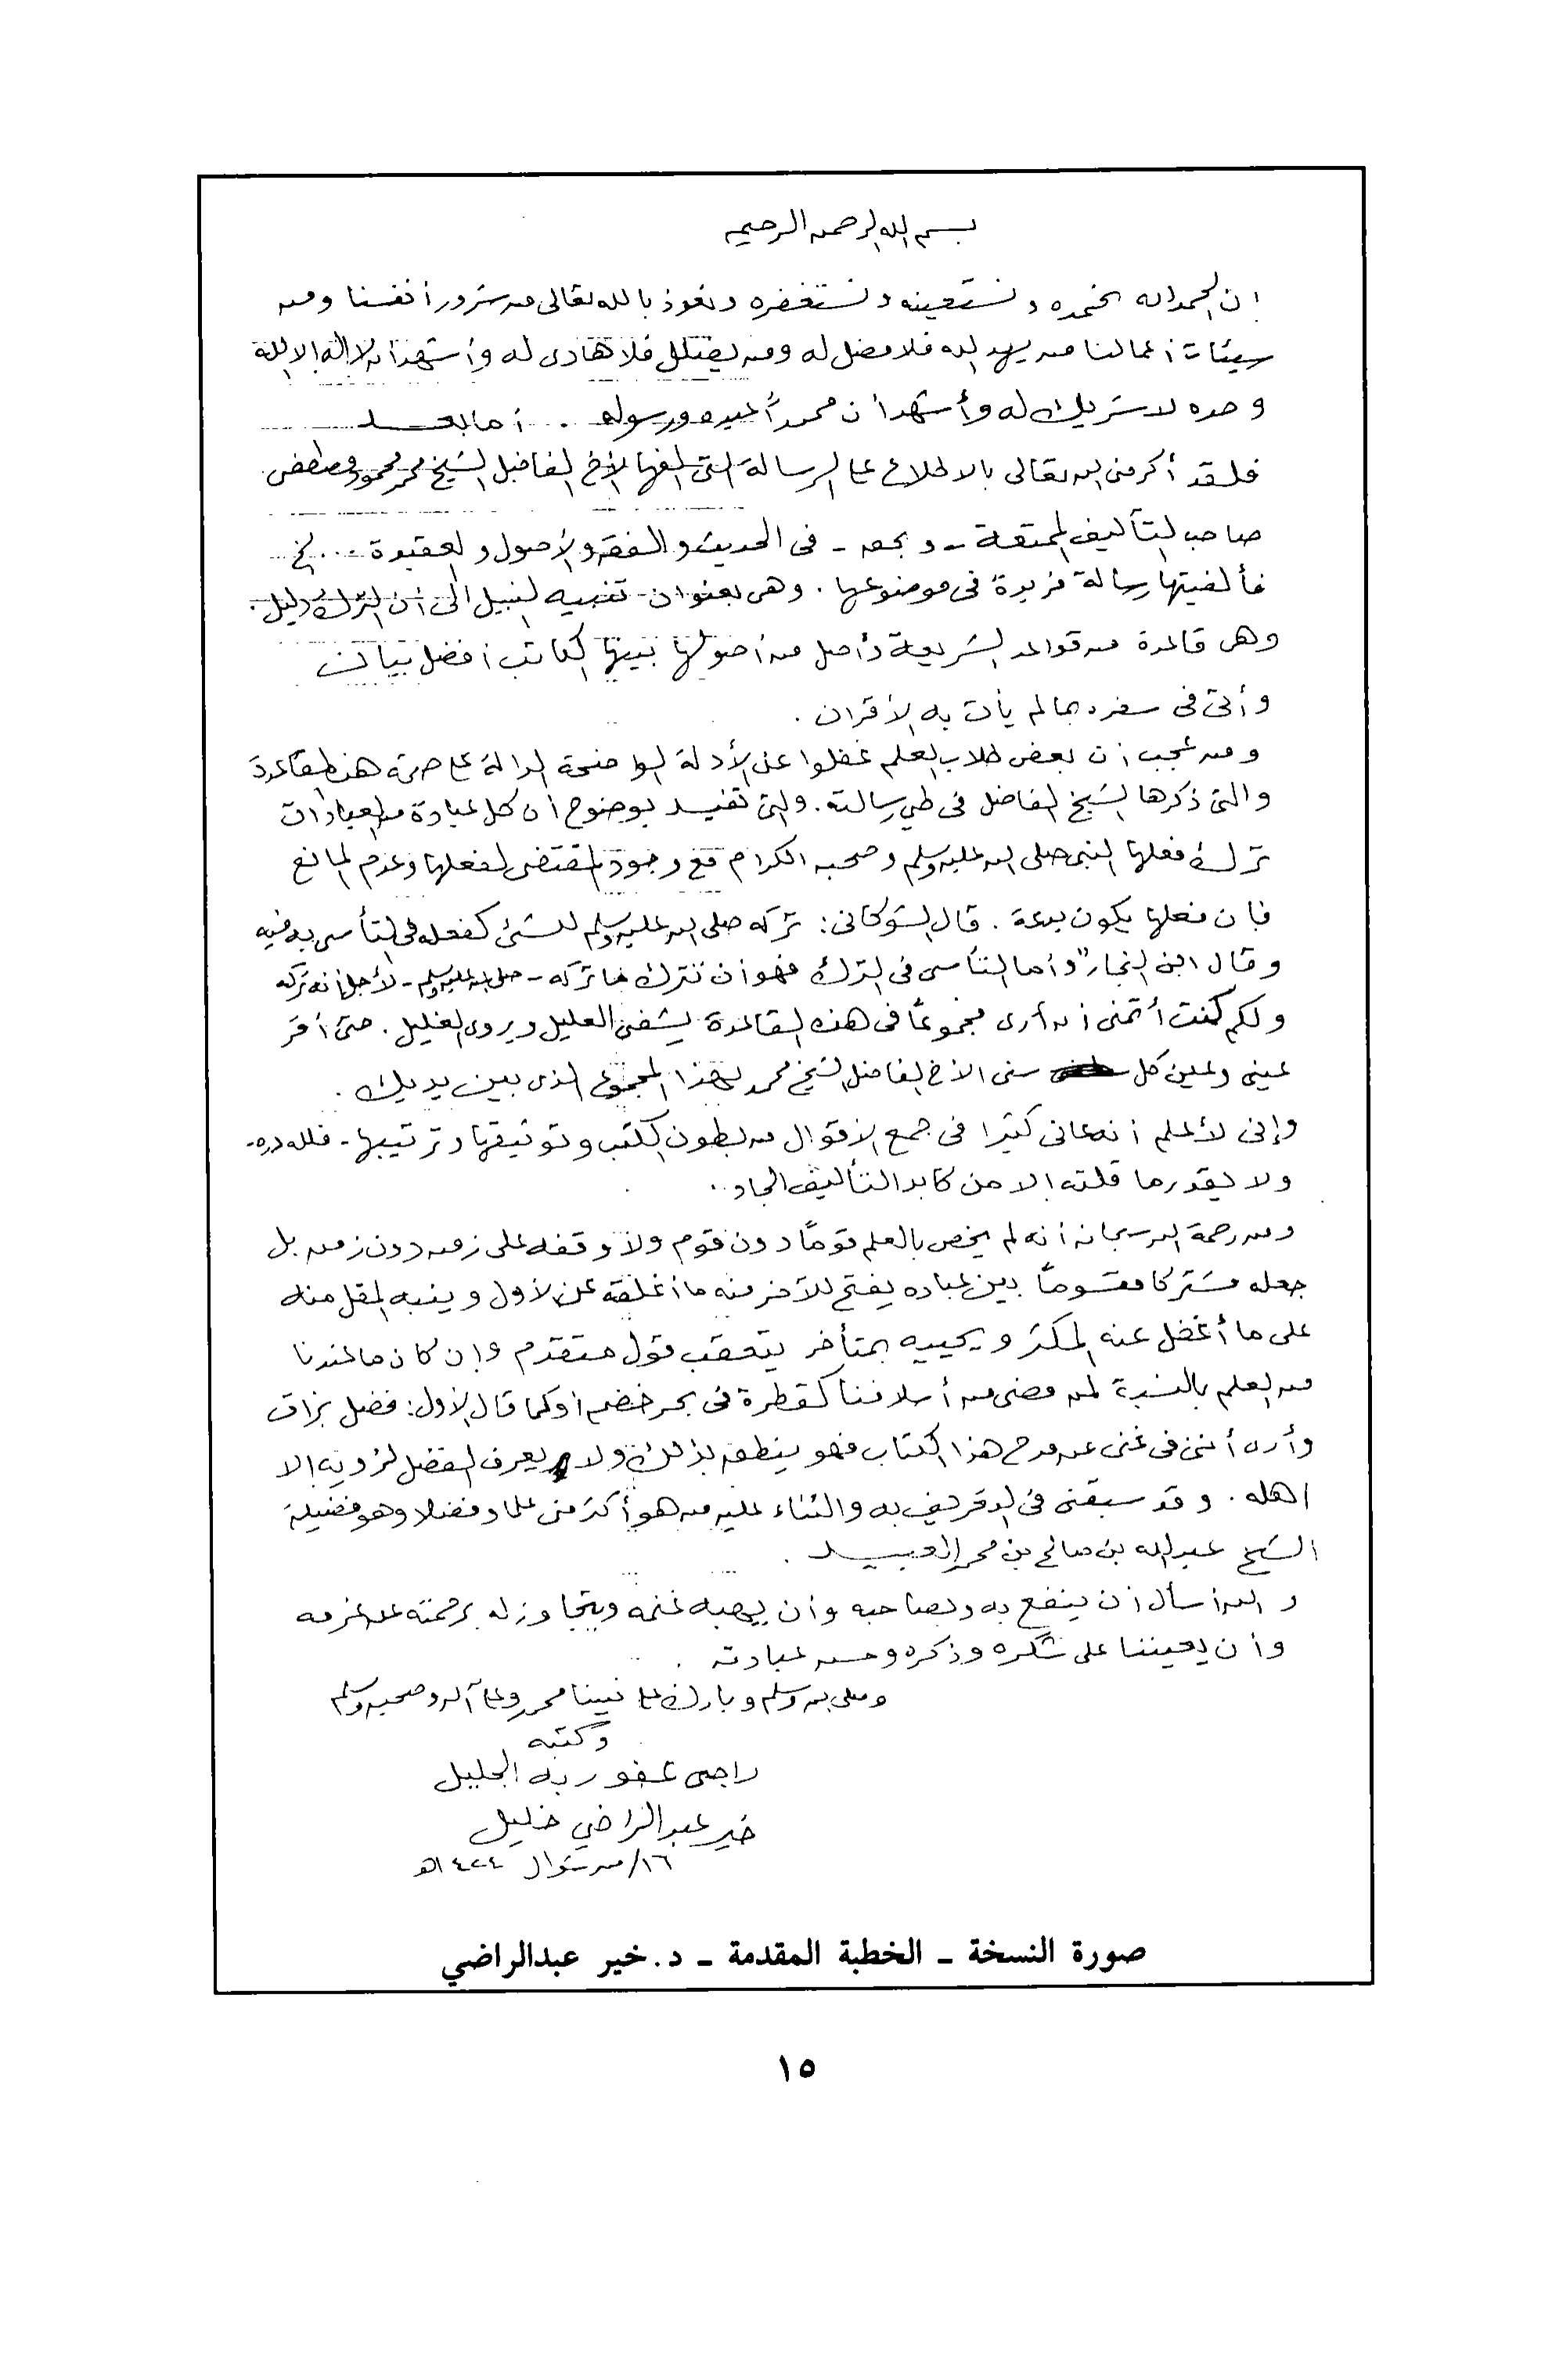 بسم الله الرحمن الرحيم
ان الحمد لله نحمده ونستعينه ونستغفره ونعوذ بالله تعالى من شرور أنفسنا ومن
سيئات أعمالنا من يهد الله فلا مضل له ومن يضلل فلا هادى له وأشهد أن لا إله إلا الله
وحده لا شريك له وأشهد أن محمداً عبده ورسوله . أما بعد
فلقد أكرمنى الله تعالى بالاطلاع على الرسالة التى ألفها الأخ الفاضل الشيخ محمد محمود مصطفى
صاحب التآليف الممتعة - وبحق - فى الحديث والفقه والأصول والعقيدة ... الخ
فألفيتها رسالة فريدة فى موضوعها . وهى بعنوان تنبيه النبيل الى أن الترك دليل .
وهى قاعدة من قواعد الشريعة وأصل من أصولها بينها الكاتب أفضل تبيان
وأتى فى سفره بما لم يأت به الأقران .
ومن عجب أن بعض طلاب العلم غفلوا عن الأدلة الواضحة الدالة على صحة هذه القاعدة
والتى ذكرها الشيخ الفاضل فى طي رسالته . والتى تفيد بوضوح أن كل عبادة من العبادات
ترك فعلها النبى صلى الله عليه وسلم وصحبه الكرام مع وجود المقتضى لفعلها وعدم المانع
فإن فعلها يكون بدعة . قال الشوكانى : تركه صلى الله عليه وسلم للشئ كفعله فى التأسى به فيه
وقال ابن النجار " وأما التأسى فى الترك فهو أن نترك ما تركه - صلى الله عليه وسلم - لأجل أنه تركه
ولكم كنت أتمنى أن أرى مجموعاً فى هذه القاعدة يشفى العليل ويروى الغليل . حتى أقر
عينى وعين كل سنى الأخ الفاضل الشيخ محمد بهذا المجموع الذى بين يديك .
وإنى لأعلم أنه عانى كثيرا فى جمع الأقوال من بطون الكتب وتوثيقها وترتيبها - فلله دره -
ولا يقدر ما قلته إلا من كابد التأليف الجاد .
ومن رحمة الله سبحانه أنه لم يخص بالعلم قوماً دون قوم ولا وقفه على زمن دون زمن بل
جعله مشتركا مقسوماً بين عباده يفتح للآخر منه ما أغلقه عن الأول وينبه المقل منه
على ما أغفل عنه المكثر ويحييه بمتأخر يتعقب قول متقدم وإن كان ما عندنا
من العلم بالنسبة لمن مضى من أسلافنا كقطرة فى بحر خضم أو كما قال الأول : فضل بزاق
وأرى أننى فى غنى عن مدح هذا الكتاب فهو ينطق بذلك ولا يعرف الفضل لذويه إلا
اهله . وقد سبقنى فى التعريف به والثناء عليه من هو أكثر منى علما وفضلا وهو فضيلة
الشيخ عبد الله بن صالح بن محمد العبيد .
والله أسأل أن ينفع به وبصاحبه وأن يهبه غنمه ويتجاوز له برحمته عن غرمه
وأن يعيننا على شكره وذكره وحسن عبادته .
وصلى الله وسلم وبارك على نبينا محمد وعلى آله وصحبه وسلم
وكتبه
راجى عفو ربه الجليل
خير عبد الراضي خليل
١٦/ من شوال ١٤٢٤هـ
صورة النسخة - الخطبة المقدمة - د. خير عبدالراضي
١٥